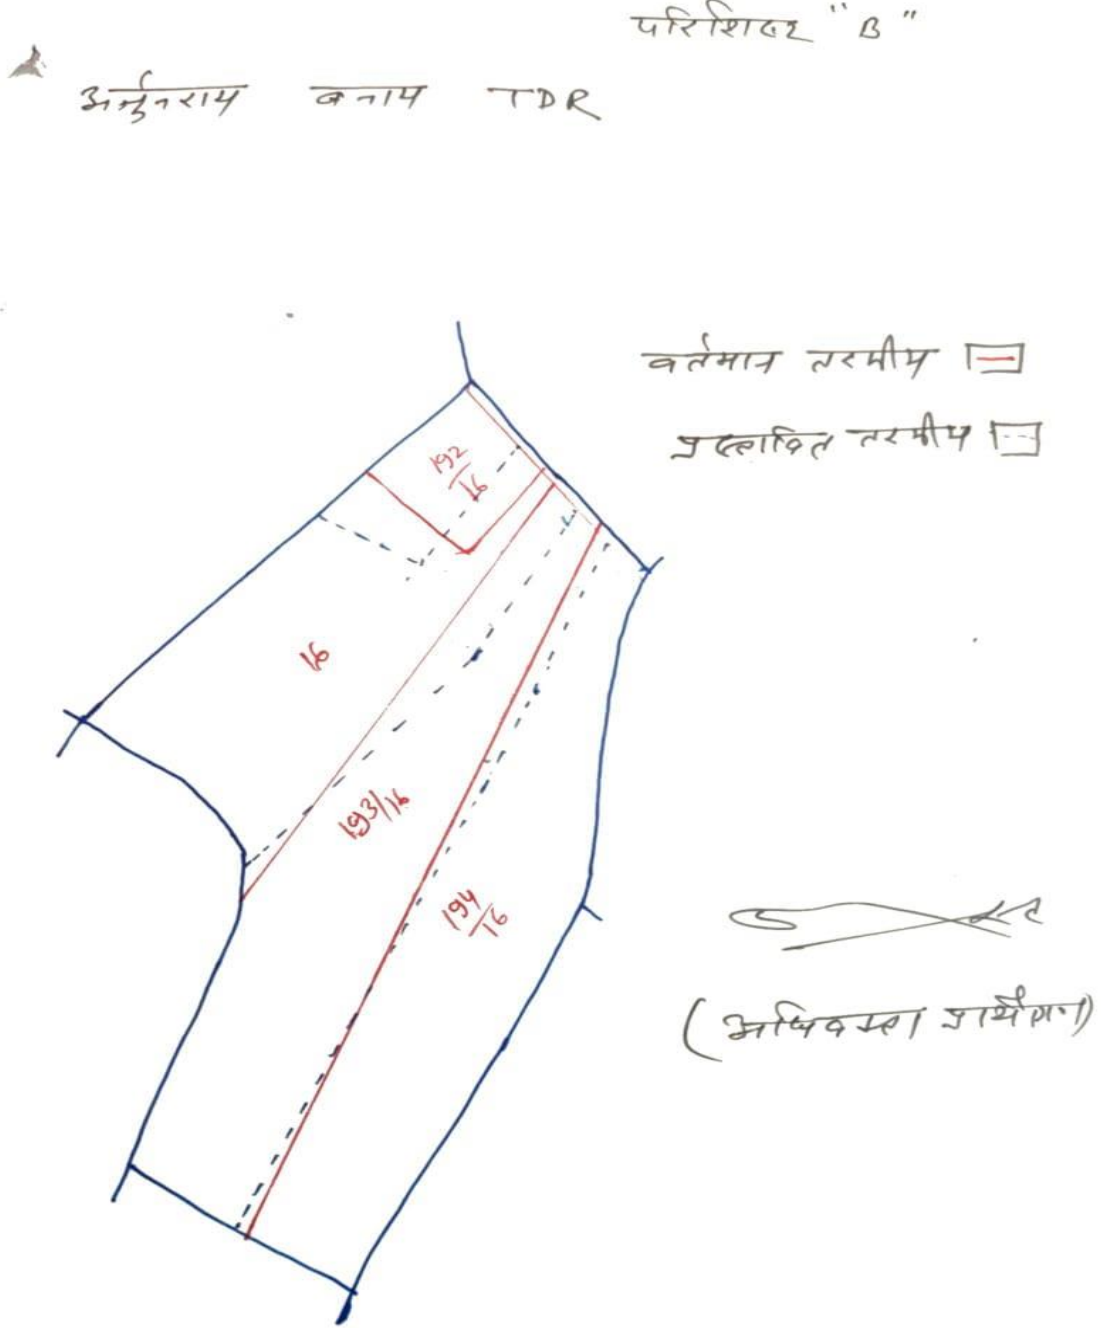 परिशिष्ट "B"
अर्जुनराम बनाम TDR
वर्तमान तरमीम
प्रस्तावित तरमीम
192/16
16
193/16
194/16
(अधिवक्ता प्रार्थीगण)